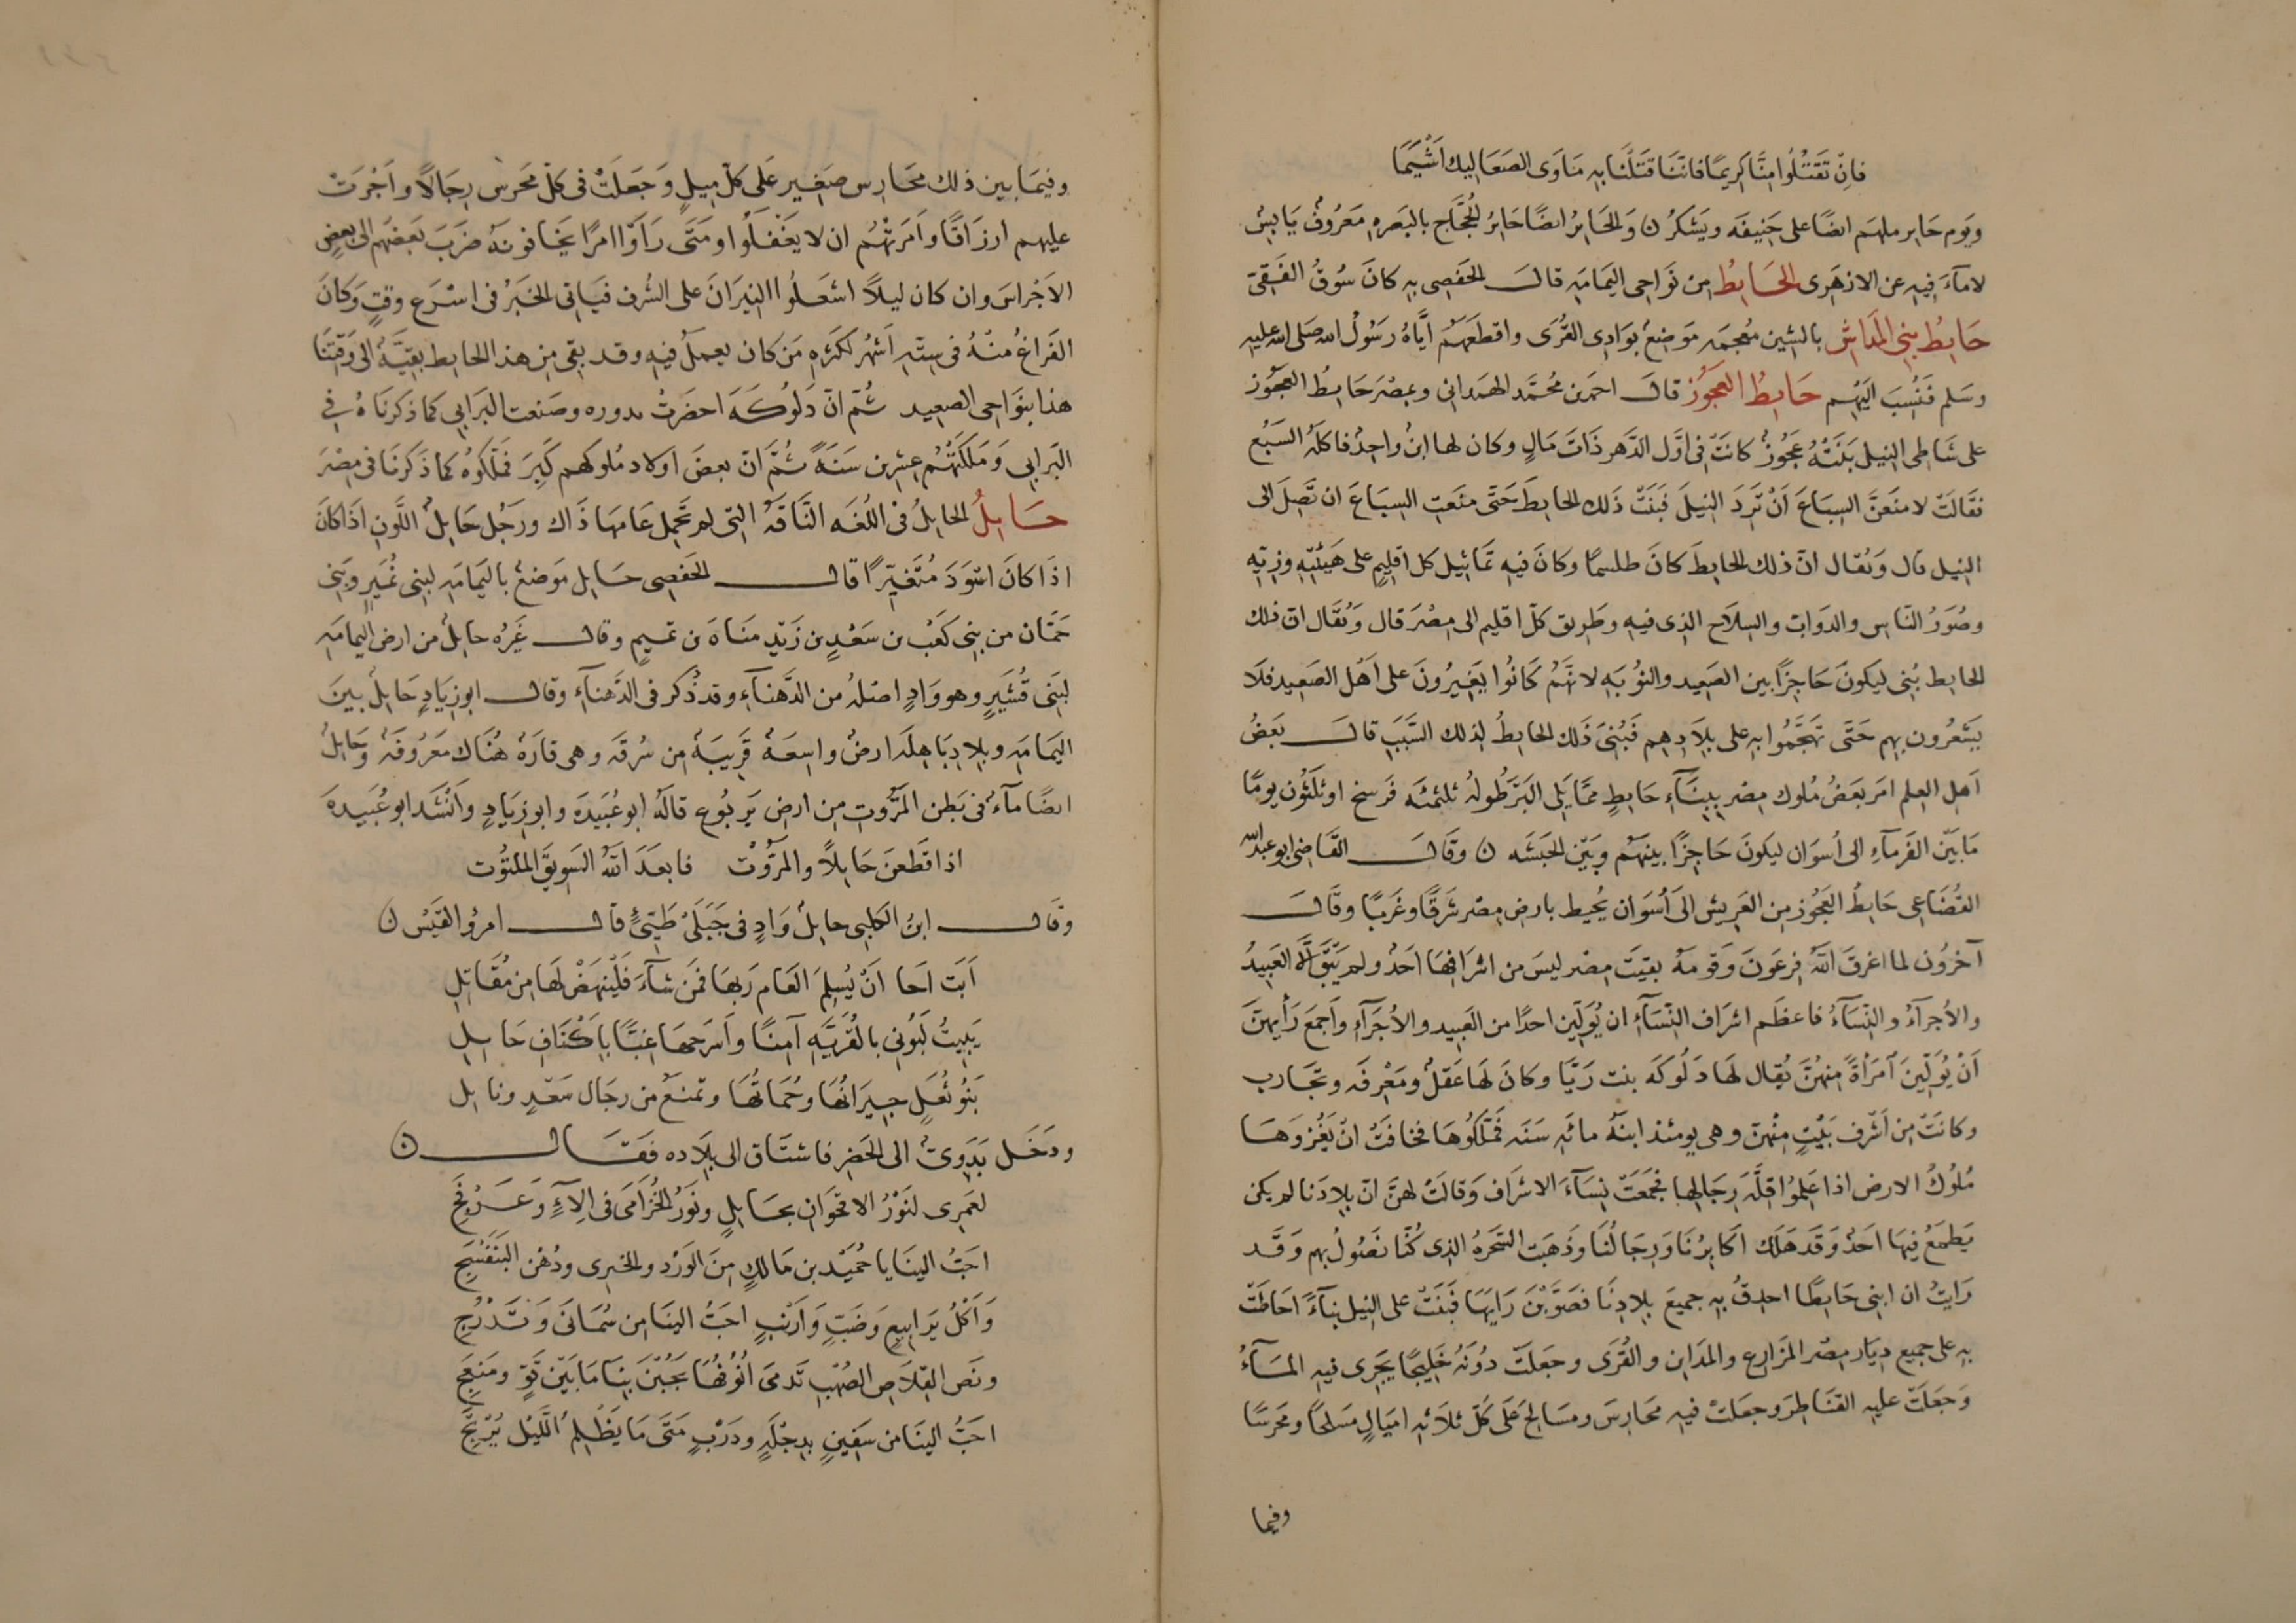 فان تقتلوا منا كريما فاننا قتلنا به مأوى الصعاليك اشيما
ويوم حاير ملهم ايضا على حنيفه ويشكر ن والحاير ايضا حاير الحجاج بالبصره معروف يابس
لا مآء فيه عن الازهرى الحايط من نواحى اليمامه قال الحفصى به كان سوق الفقى
حايط بنى المداش بالشين معجمه موضع بوادى القرى واقطعهم اياه رسول الله صلى الله عليه
وسلم فنسب اليهم حايط العجوز قال احمد بن محمد الهمدانى وبمصر حايط العجوز
على شاطى النيل بنته عجوز كانت فى اول الدهر ذات مال وكان لها ابن واحد فاكله السبع
فقالت لامنعن السباع ان ترد النيل فبنت ذلك الحايط حتى منعت السباع ان تصل الى
النيل قال ويقال ان ذلك الحايط كان طلسما وكان فيه تماثيل كل اقليم على هيئته وزيه
وصور الناس والدواب والسلاح الذى فيه وطريق كل اقليم الى مصر قال ويقال ان ذلك
الحايط بنى ليكون حاجزا بين الصعيد والنوبه لانهم كانوا يغيرون على اهل الصعيد فلا
يشعرون بهم حتى تهجموا به على بلادهم فبنى ذلك الحايط لذلك السبب قال بعض
اهل العلم امر بعض ملوك مصر ببنآء حايط مما يلى البر طوله ثلثمئه فرسخ او ثلثون يوما
ما بين الفرمآء الى أسوان ليكون حاجزا بينهم وبين الحبشه ن وقال القاضى ابو عبد الله
القضاعى حايط العجوز من العريش الى أسوان يحيط بارض مصر شرقا وغربا وقال
آخرون لما اغرق الله فرعون وقومه بقيت مصر ليس من اشرافها احد ولم يبق الا العبيد
والأجرآء والنسآء فاعظم اشراف النسآء ان يولين احدا من العبيد والأجرآء واجمع رأيهن
ان يولين امرأة منهن يقال لها دلوكه بنت ريا وكان لها عقل ومعرفه وتجارب
وكانت من أشرف بيت منهن وهى يومئذ ابنة مائه سنه فملكوها فخافت ان يغزوها
ملوك الارض اذا علموا قلة رجالها فجمعت نسآء الاشراف وقالت لهن ان بلادنا لم يكن
يطمع فيها احد وقد هلك اكابرنا ورجالنا وذهبت السحره الذى كنا نصول بهم وقد
رايت ان ابنى حايطا احدق به جميع بلادنا فصوبن رايها فبنت على النيل بنآء احاطت
به على جميع ديار مصر المزارع والمداين والقرى وجعلت دونه خليجا يجرى فيه المآء
وجعلت عليه القناطر وجعلت فيه محارس ومسالح على كل ثلاثه اميال مسلحا ومحرسا
وفيما
وفيما بين ذلك محارس صغير على كل ميل وجعلت فى كل محرس رجالا واجرت
عليهم ارزاقا وامرتهم ان لا يغفلوا ومتى رأوا امرا يخافونه ضرب بعضهم الى بعض
الاجراس وان كان ليلا اشعلوا النيران على الشرف فياتى الخبر فى اسرع وقت وكان
الفراغ منه فى سته اشهر لكثره من كان يعمل فيه وقد بقى من هذا الحايط بقية الى وقتنا
هذا بنواحى الصعيد ثم ان دلوكه احضرت بدوره وصنعت البرابى كما ذكرناه فى
البرابى وملكتهم عشرين سنة ثم ان بعض اولاد ملوكهم كبر فملكوه كما ذكرنا فى مصر
حايل الحايل فى اللغه الناقة التى لم تحمل عامها ذاك ورجل حايل اللون اذا كان
اذا كان اسود متغيرا قال الحفصى حايل موضع باليمامه لبنى نمير وبنى
حمان من بنى كعب بن سعد بن زيد مناة بن تميم وقال غيره حايل من ارض اليمامه
لبنى قشير وهو واد اصله من الدهنآء وقد ذكر فى الدهنآء وقال ابو زياد حايل بين
اليمامه وبلاد باهله ارض واسعة قريبة من سرقه وهى قارة هناك معروفة وحايل
ايضا مآء فى بطن المروت من ارض يربوع قاله ابو عبيدة وابو زياد وانشد ابو عبيدة
اذا قطعن حايلا والمروت فابعد الله السويق الملتوت
وقال ابن الكلبى حايل واد فى جبلى طيئ قال امرؤ القيس ن
أبت اجا ان يسلم العام ربها فمن شآء فلينهض لها من مقاتل
يبيت لبونى بالقرية آمنا واسرحها غبا باكناف حايل
بنو ثعل جيرانها وحماتها وتمنع من رجال سعد ونابل
ودخل بدوى الى الحضر فاشتاق الى بلاده فقال ن
لعمرى لنور الاقحوان بحايل ونور الخزامى فى الآء وعرفج
احب الينا يا حميد بن مالك من الورد والخيرى ودهن البنفسج
واكل يرابيع وضب وارنب احب الينا من سمانى وتدرج
ونص القلاص الصهب تدمى انوفها يجبن بنا ما بين قو ومنعج
احب الينا من سفين بدجلة ودرب متى ما يظلم الليل يرتج